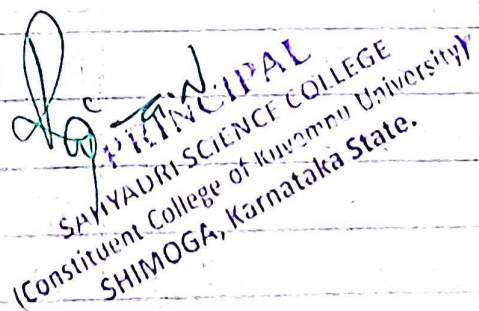 PRINCIPAL
SAHYADRI SCIENCE COLLEGE
(Constituent College of Kuvempu University)
SHIMOGA, Karnataka State.